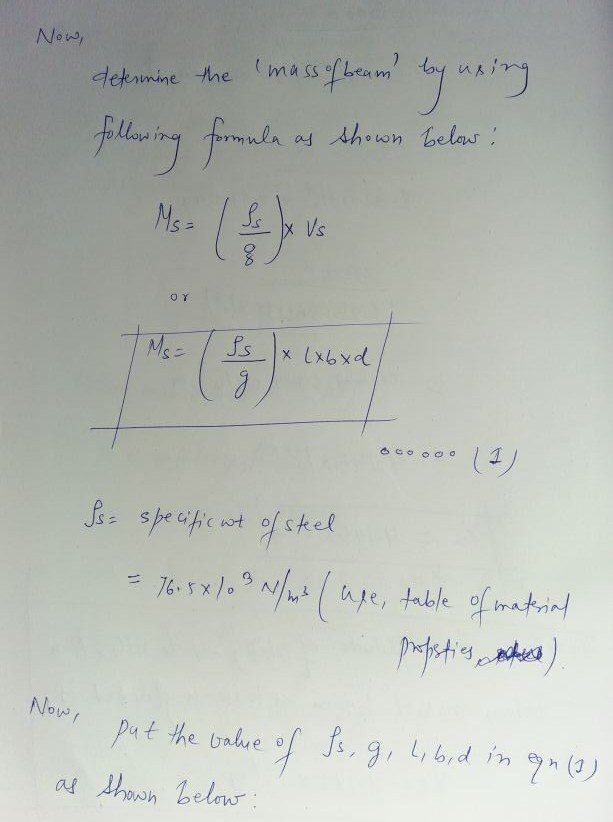 Now,
determine the 'mass of beam' by using
following formula as shown below:
Ms = (ρs/g) × Vs
or
Ms = (ρs/g) × L×b×d
...... (I)
ρs = specific wt of steel
= 76.5×10³ N/m³ (use, table of material
propeties).
Now,
put the value of ρs, g, L, b, d in eqn (1)
as shown below: